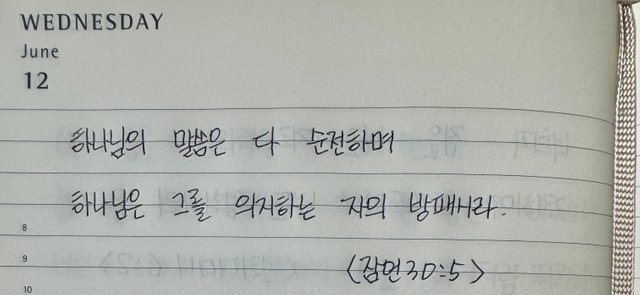 WEDNESDAY
June
12
하나님의 말씀은 다 순전하며
하나님은 그를 의지하는 자의 방패시라.
8
9
<잠언30:5>
10